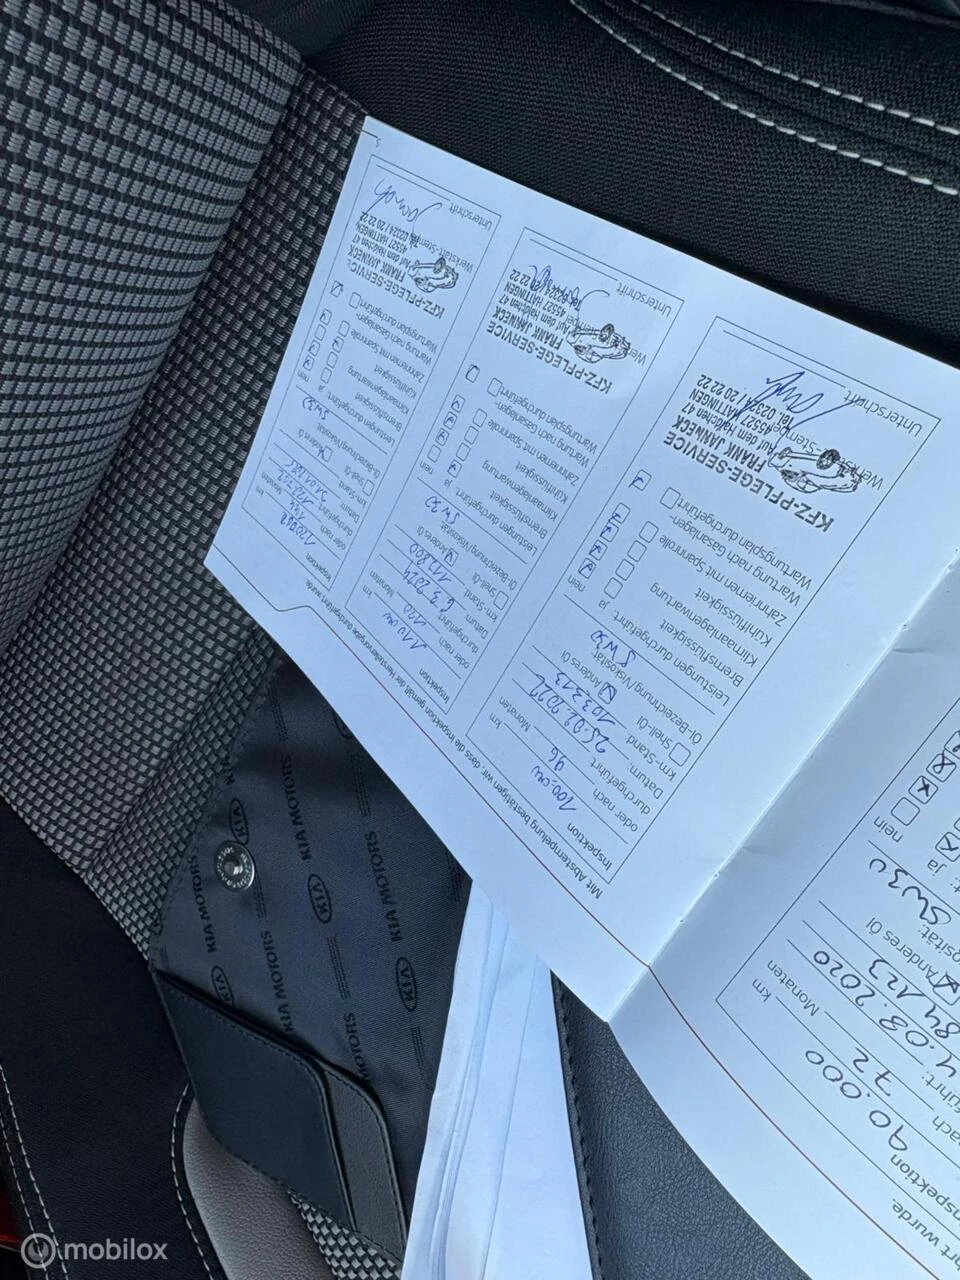 Mit Abstempelung bestätigen wir, dass die Inspektion gemäß der Herstellervorgabe durchgeführt wurde.
Inspektion 100.000 km
oder nach 96 Monaten
durchgeführt.
Datum: 25.02.2022
km-Stand: 103313
Shell-Öl Anderes Öl
Öl-Bezeichnung/Viskosität: 5W30
Leistungen durchgeführt: ja nein
Bremsflüssigkeit
Klimaanlagenwartung
Kühlflüssigkeit
Zahnriemen mit Spannrolle
Wartung nach Gasanlagen-
Wartungsplan durchgeführt
KFZ-PFLEGE-SERVICE
FRANK JANNECK
Auf dem Haidchen 47
45527 HATTINGEN
Tel. 02324 / 20 22 22
Unterschrift
Inspektion 110.000 km
oder nach 120 Monaten
durchgeführt.
Datum: 6.3.2024
km-Stand: 112800
Shell-Öl Anderes Öl
Öl-Bezeichnung/Viskosität: 5W30
Leistungen durchgeführt: ja nein
Bremsflüssigkeit
Klimaanlagenwartung
Kühlflüssigkeit
Zahnriemen mit Spannrolle
Wartung nach Gasanlagen-
Wartungsplan durchgeführt
KFZ-PFLEGE-SERVICE
FRANK JANNECK
Auf dem Haidchen 47
45527 HATTINGEN
Tel. 02324 / 20 22 22
Unterschrift
Inspektion km
oder nach Monaten
durchgeführt.
Datum:
km-Stand:
Shell-Öl Anderes Öl
Öl-Bezeichnung/Viskosität: 5W30
Leistungen durchgeführt: ja nein
Bremsflüssigkeit
Klimaanlagenwartung
Kühlflüssigkeit
Zahnriemen mit Spannrolle
Wartung nach Gasanlagen-
Wartungsplan durchgeführt
KFZ-PFLEGE-SERVICE
FRANK JANNECK
Auf dem Haidchen 47
45527 HATTINGEN
Tel. 02324 / 20 22 22
Werkstatt-Stempel
Unterschrift
5
90.000 km
72 Monaten
.08.2020
84123
Anderes Öl
5W30
ja nein
KIA MOTORS
KIA MOTORS
KIA MOTORS
KIA MOTORS
KIA MOTORS
mobilox